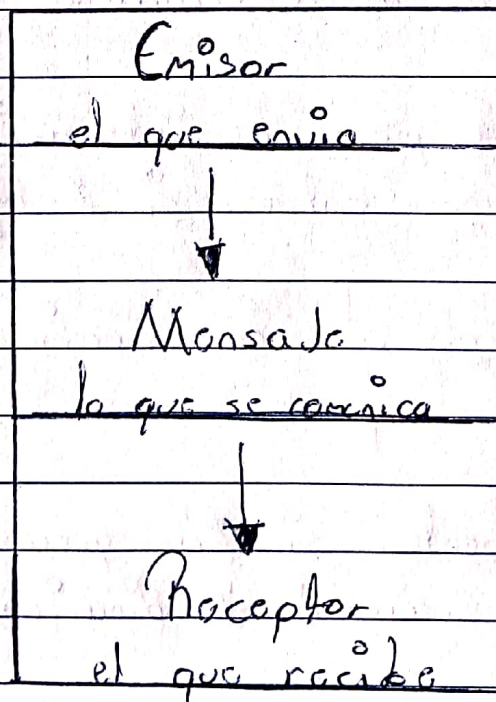 Emisor
el que envia
Mensaje
lo que se comunica
Receptor
el que recibe